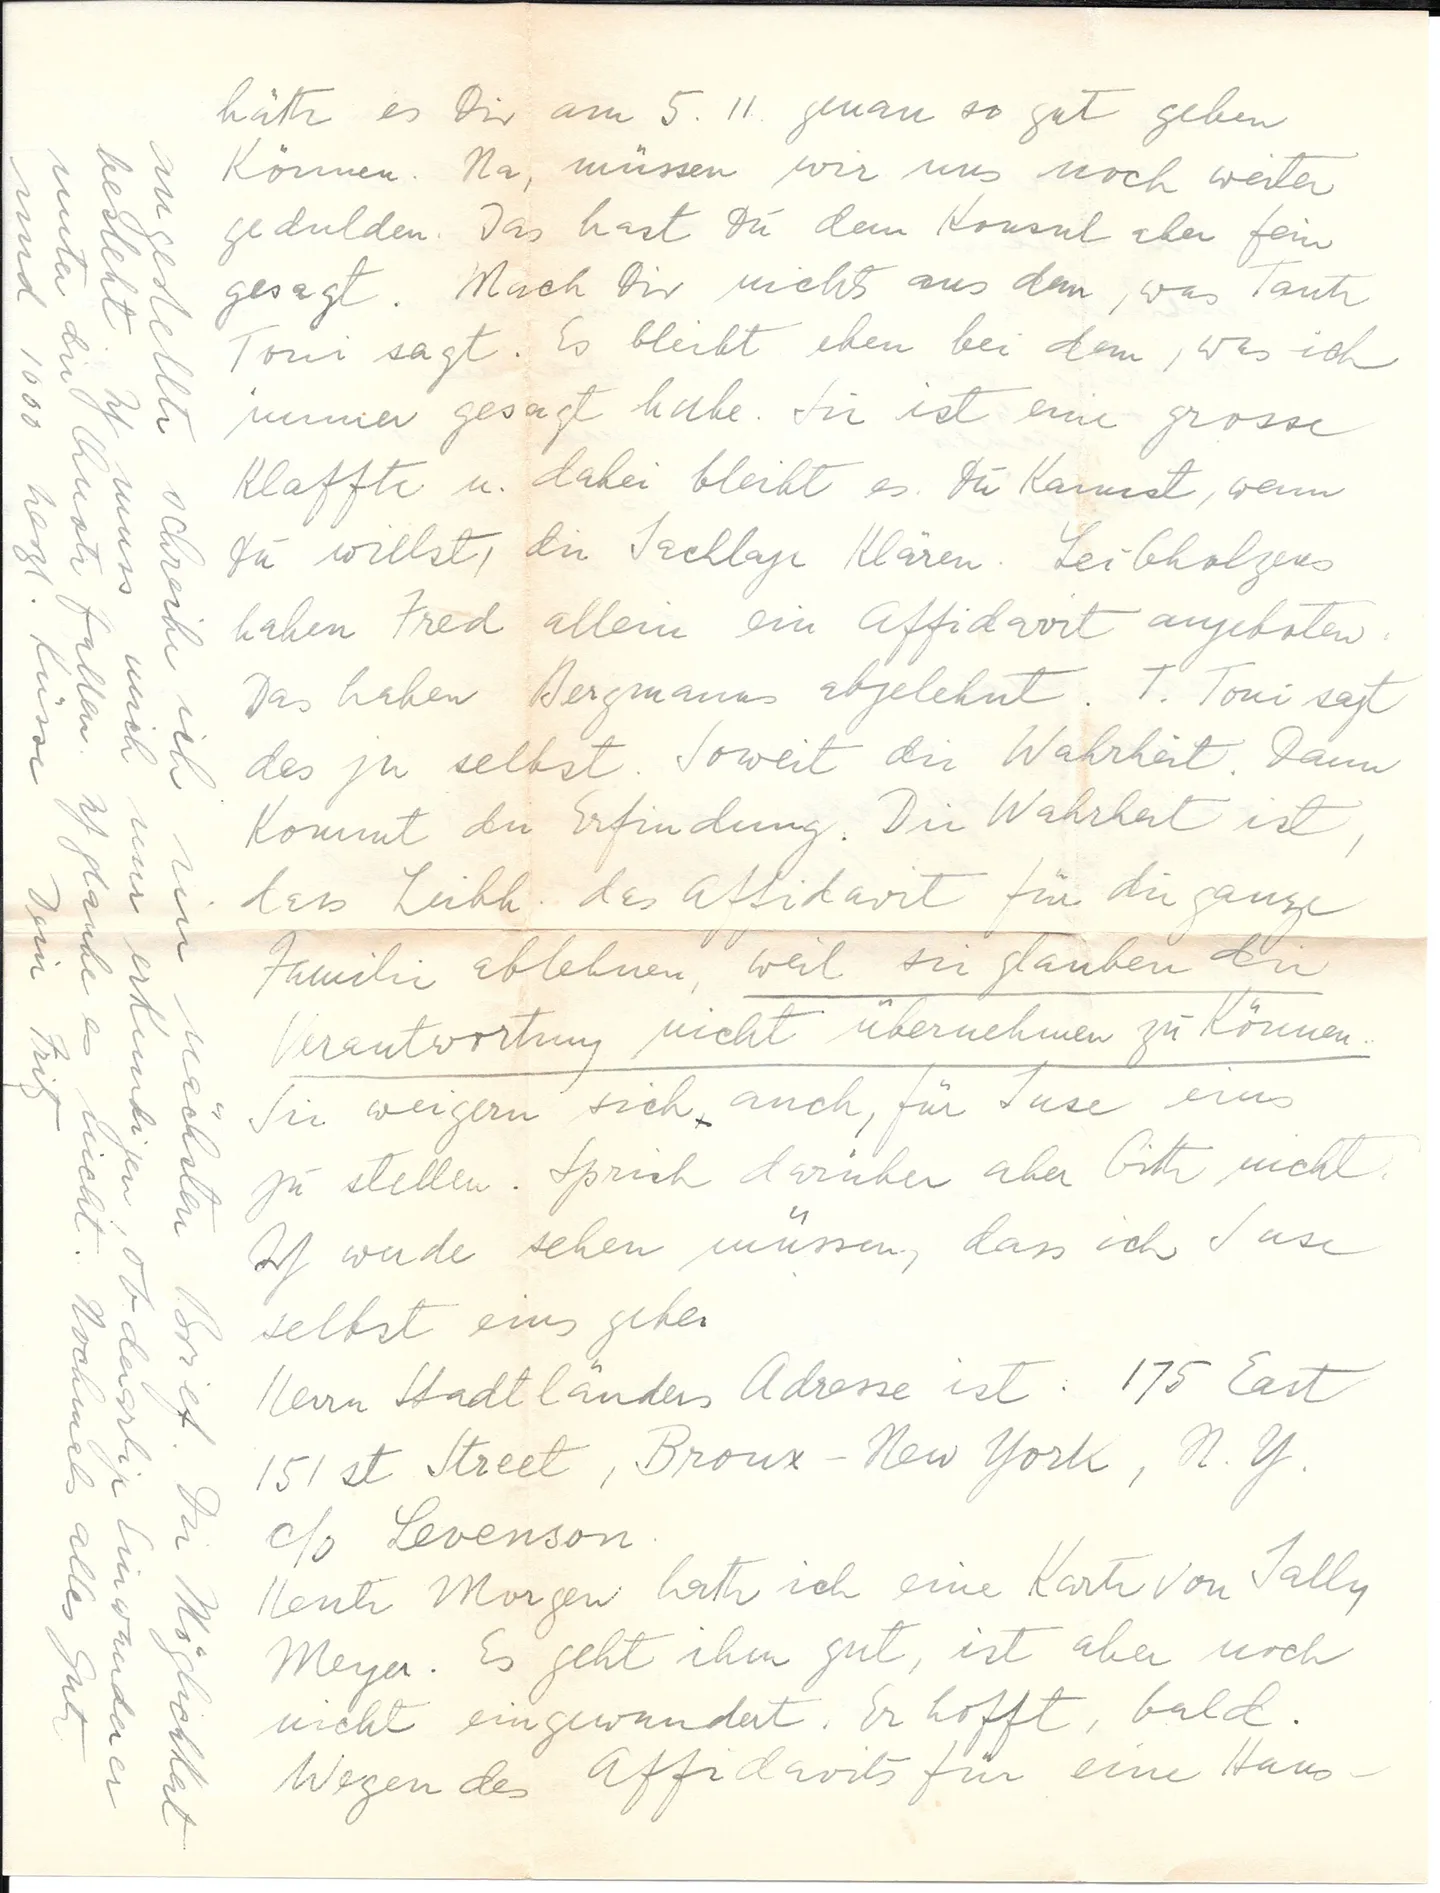 hätte es Dir am 5. 11. genau so gut geben
Können. Na, müssen wir uns noch weiter
gedulden. Das hast Du dem Konsul aber fein
gesagt. Mach Dir nichts aus dem, was Tante
Toni sagt. Es bleibt eben bei dem, was ich
immer gesagt habe. Sie ist eine grosse
Klaffte u. dabei bleibt es. Du Kannst, wenn
Du willst, die Sachlage Klären. Leibholzens
haben Fred allein ein Affidavit angeboten.
Das haben Bergmanns abgelehnt. T. Toni sagt
das ja selbst. Soweit die Wahrheit. Dann
Kommt die Erfindung. Die Wahrheit ist,
dass Leibh. das Affidavit für die ganze
Familie ablehnen, weil sie glauben die
Verantwortung nicht übernehmen zu Können.
Sie weigern sich auch, für Suse eins
zu stellen. Sprich darüber aber bitte nicht.
Ich werde sehen müssen, dass ich Suse
selbst eins gebe.
Herrn Stadtländers Adresse ist: 175 East
151 st Street, Bronx – New York, N. Y.
c/o Levenson.
Heute Morgen hatte ich eine Karte von Sally
Meyer. Es geht ihm gut, ist aber noch
nicht eingewandert. Er hofft, bald.
Wegen des Affidavits für eine Haus-
angestellte schreibe ich im nächsten Brief. Die Möglichkeit
besteht. Ich muss mich nur erkundigen, ob derartige Einwanderer
unter die Quote fallen. Ich glaube es nicht. Nochmals alles Gute
und 1000 herzl. Küsse Dein Fritz